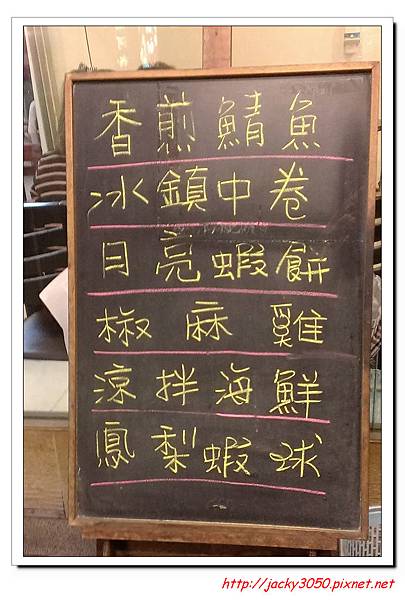 香煎鯖魚
冰鎮中卷
日亮蝦餅
椒麻雞
涼拌海鮮
鳳梨蝦球
http://jacky3050.pixnet.net